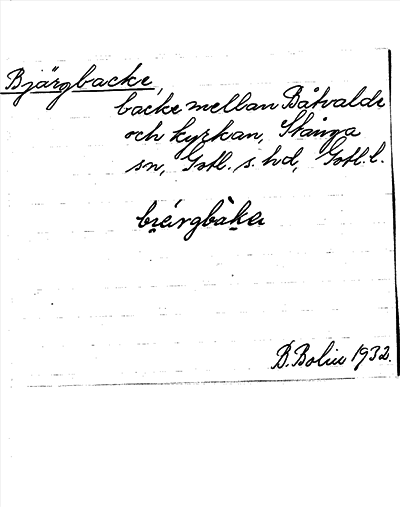 Bjärgbacke,
backe mellan Båtvalde
och kyrkan, Stånga
sn, Gotl. s. hd, Gotl. l.
D. Bolin 1932.